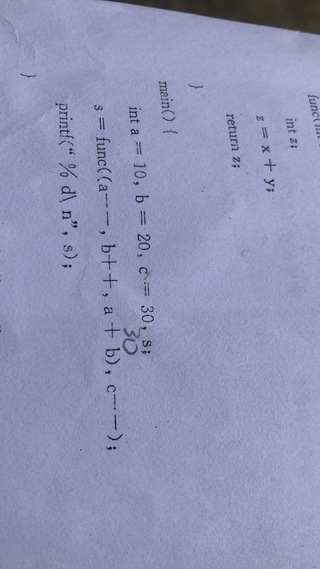 int z;
z = x + y;
return z;
}
main() {
int a = 10, b = 20, c = 30, s;
30
s = func((a--, b++, a + b), c--);
printf(“ % d\ n”, s);
}